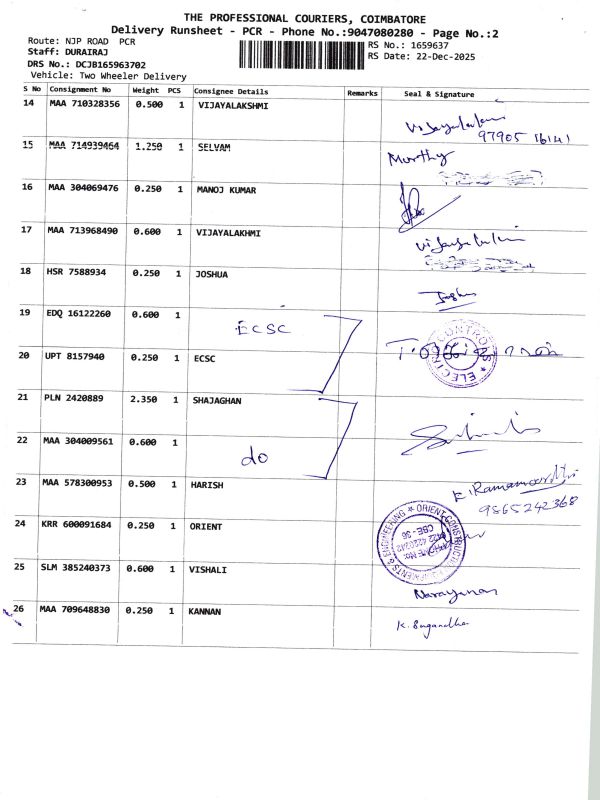 THE PROFESSIONAL COURIERS, COIMBATORE
Delivery Runsheet - PCR - Phone No.:9047080280 - Page No.:2
Route: NJP ROAD PCR
RS No.: 1659637
Staff: DURAIRAJ
RS Date: 22-Dec-2025
DRS No.: DCJB165963702
Vehicle: Two Wheeler Delivery
S No Consignment No Weight PCS Consignee Details Remarks Seal & Signature
14 MAA 710328356 0.500 1 VIJAYALAKSHMI
97905 16141
15 MAA 714939464 1.250 1 SELVAM Murthy
16 MAA 304069476 0.250 1 MANOJ KUMAR
17 MAA 713968490 0.600 1 VIJAYALAKHMI
18 HSR 7588934 0.250 1 JOSHUA
19 EDQ 16122260 0.600 1 ECSC
20 UPT 8157940 0.250 1 ECSC
21 PLN 2420889 2.350 1 SHAJAGHAN
22 MAA 304009561 0.600 1 do
23 MAA 578300953 0.500 1 HARISH
9865242368
24 KRR 600091684 0.250 1 ORIENT
25 SLM 385240373 0.600 1 VISHALI Narayanan
26 MAA 709648830 0.250 1 KANNAN K. Sugandha